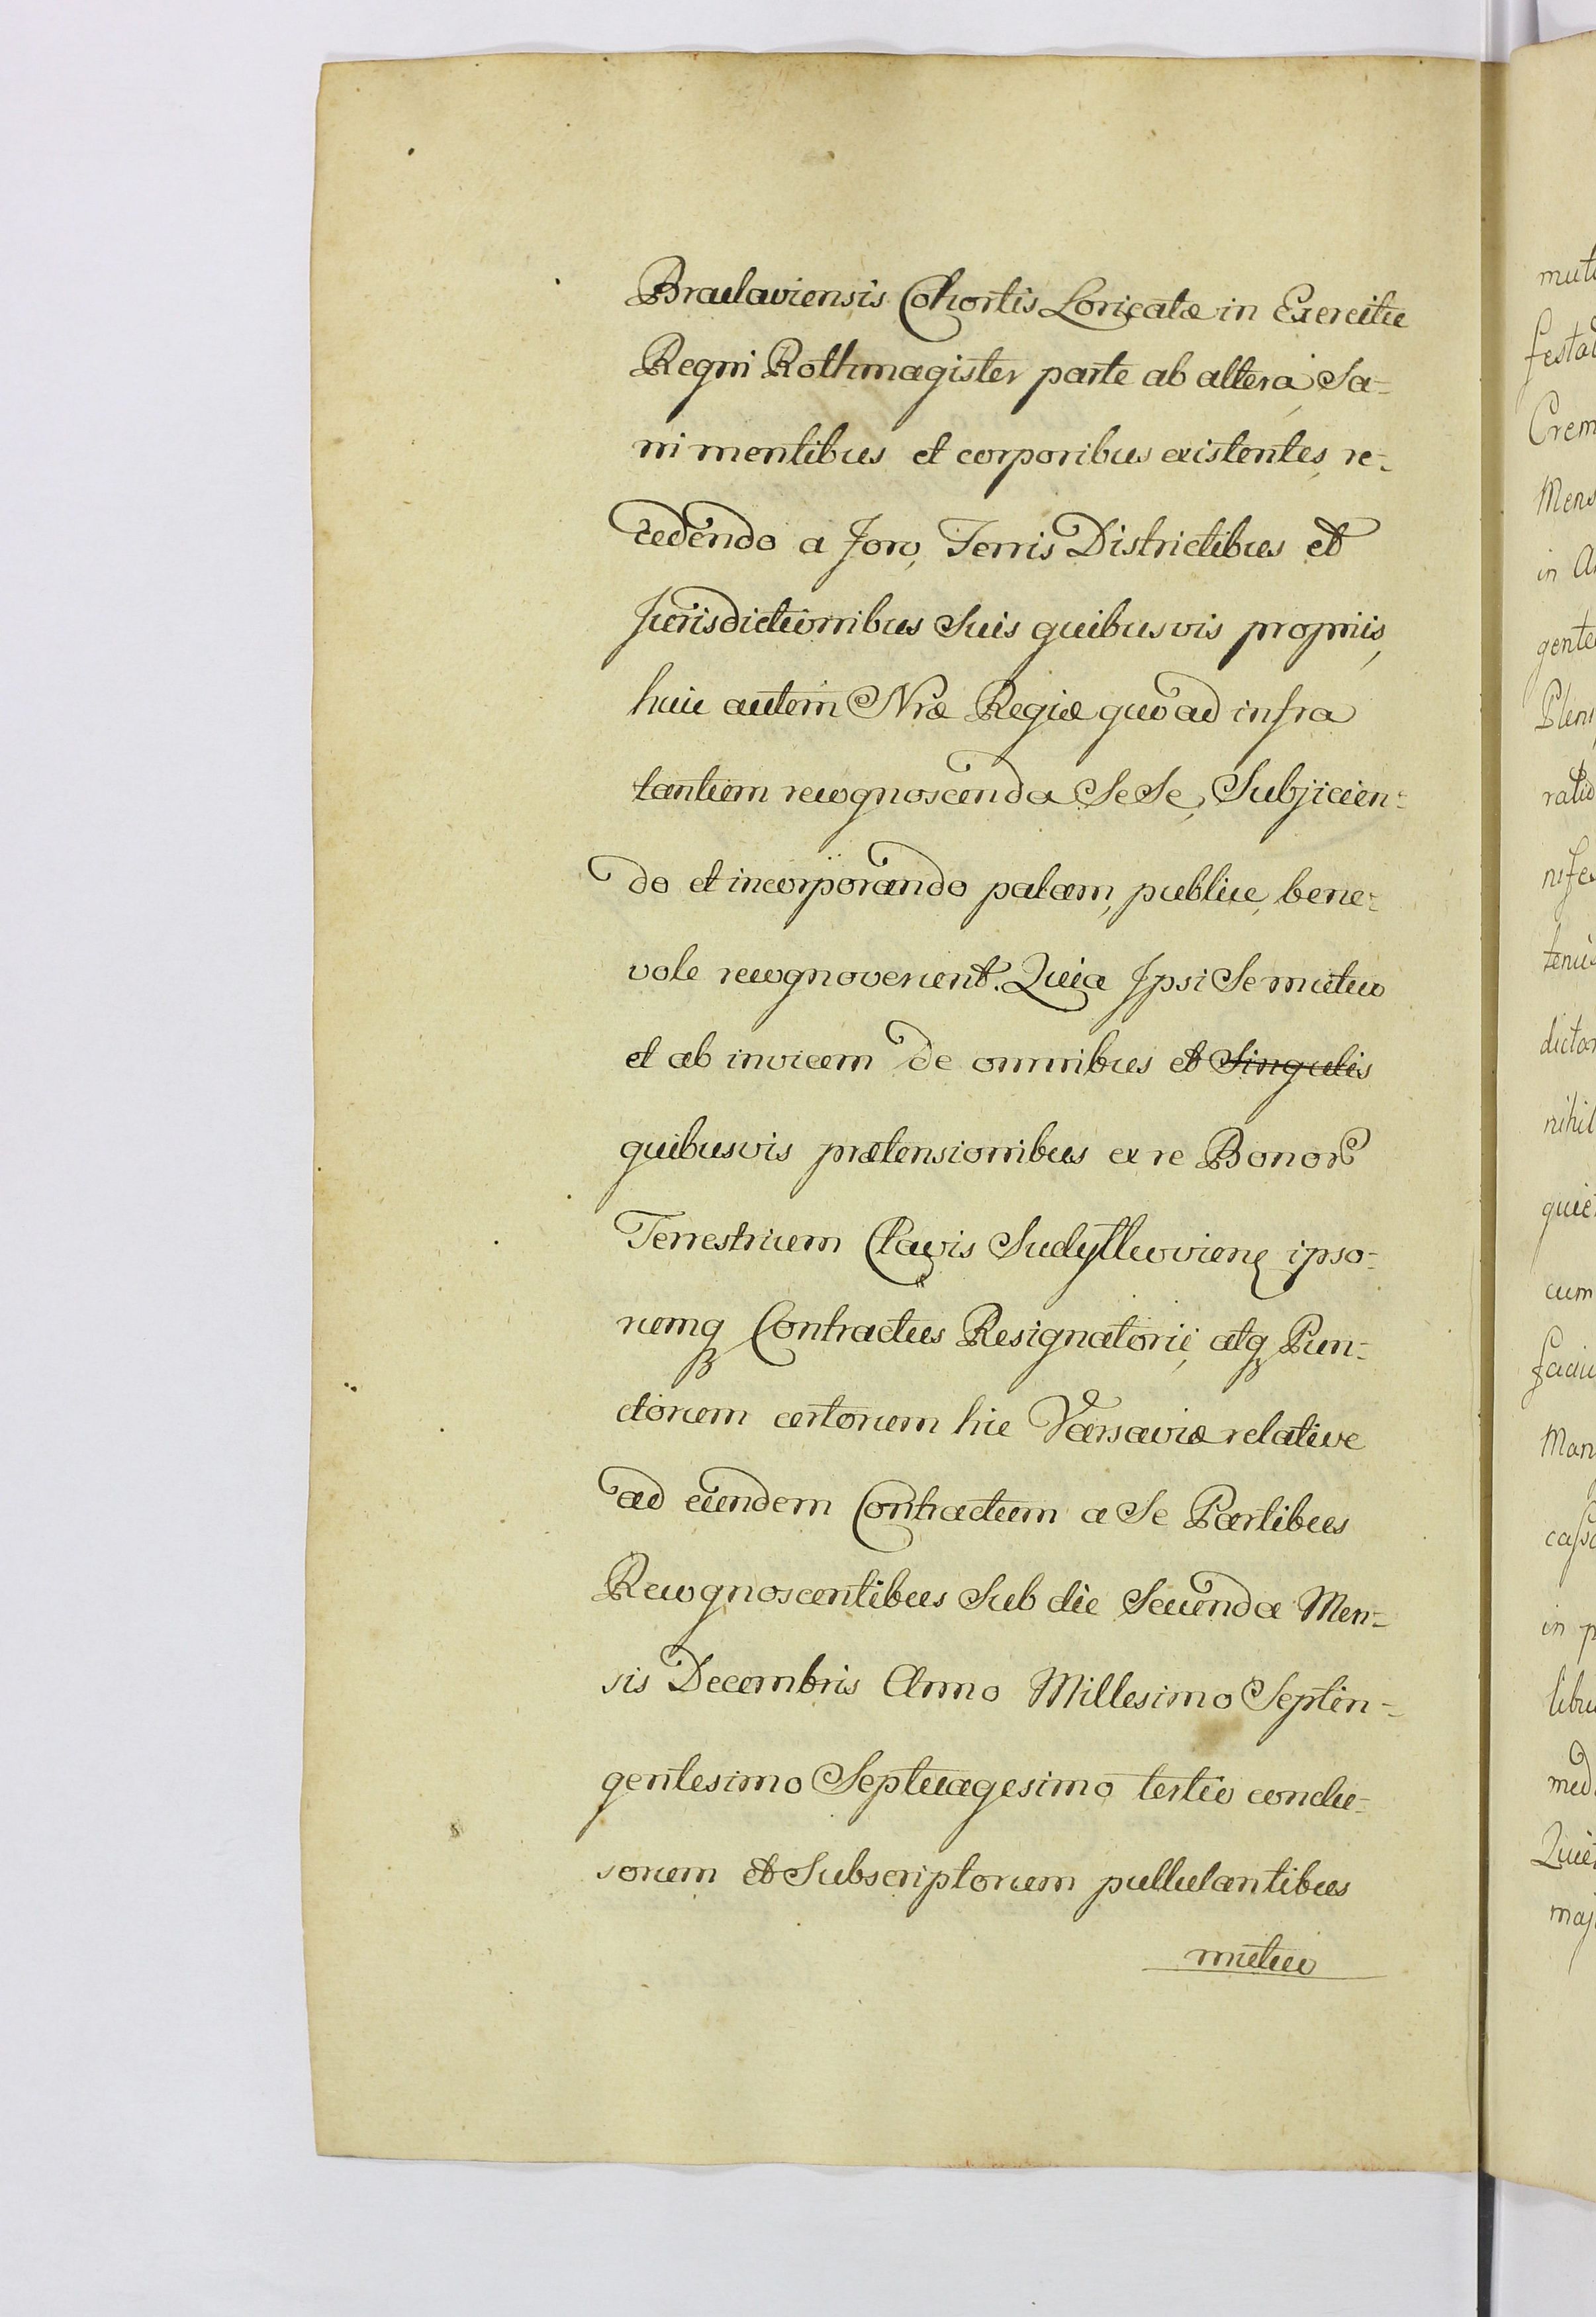 Braclaviensis Cohortis Loricatæ in Exercitu
Regni Rothmagister parte ab altera, Sa-
ni mentibus et corporibus existentes, re-
cedendo a Foro, Terris Districtibus et
Jurisdictionibus Suis quibusvis propriis,
huic autem Nræ Regiæ quo ad infra
tantum recognoscenda Se Se, Subjicien-
do et incorporando palam, publice, bene-
vole recognoverunt. Quia Ipsi Se mutuo
et ab invicem de omnibus et Singulis
quibusvis prætensionibus ex re Bonorꝝ
Terrestrium Clavis
ipso-
rumqꝫ Contractus Resignatorii, atqꝫ Pun-
ctorum certorum hic Varsaviæ relative
ad eundem Contractum a Se Partibus
Recognoscentibus Sub die Secunda Men-
sis Decembris Anno Millesimo Septin-
gentesimo Septuagesimo tertio conclu-
sorum et Subscriptorum pullulantibus
mutuo